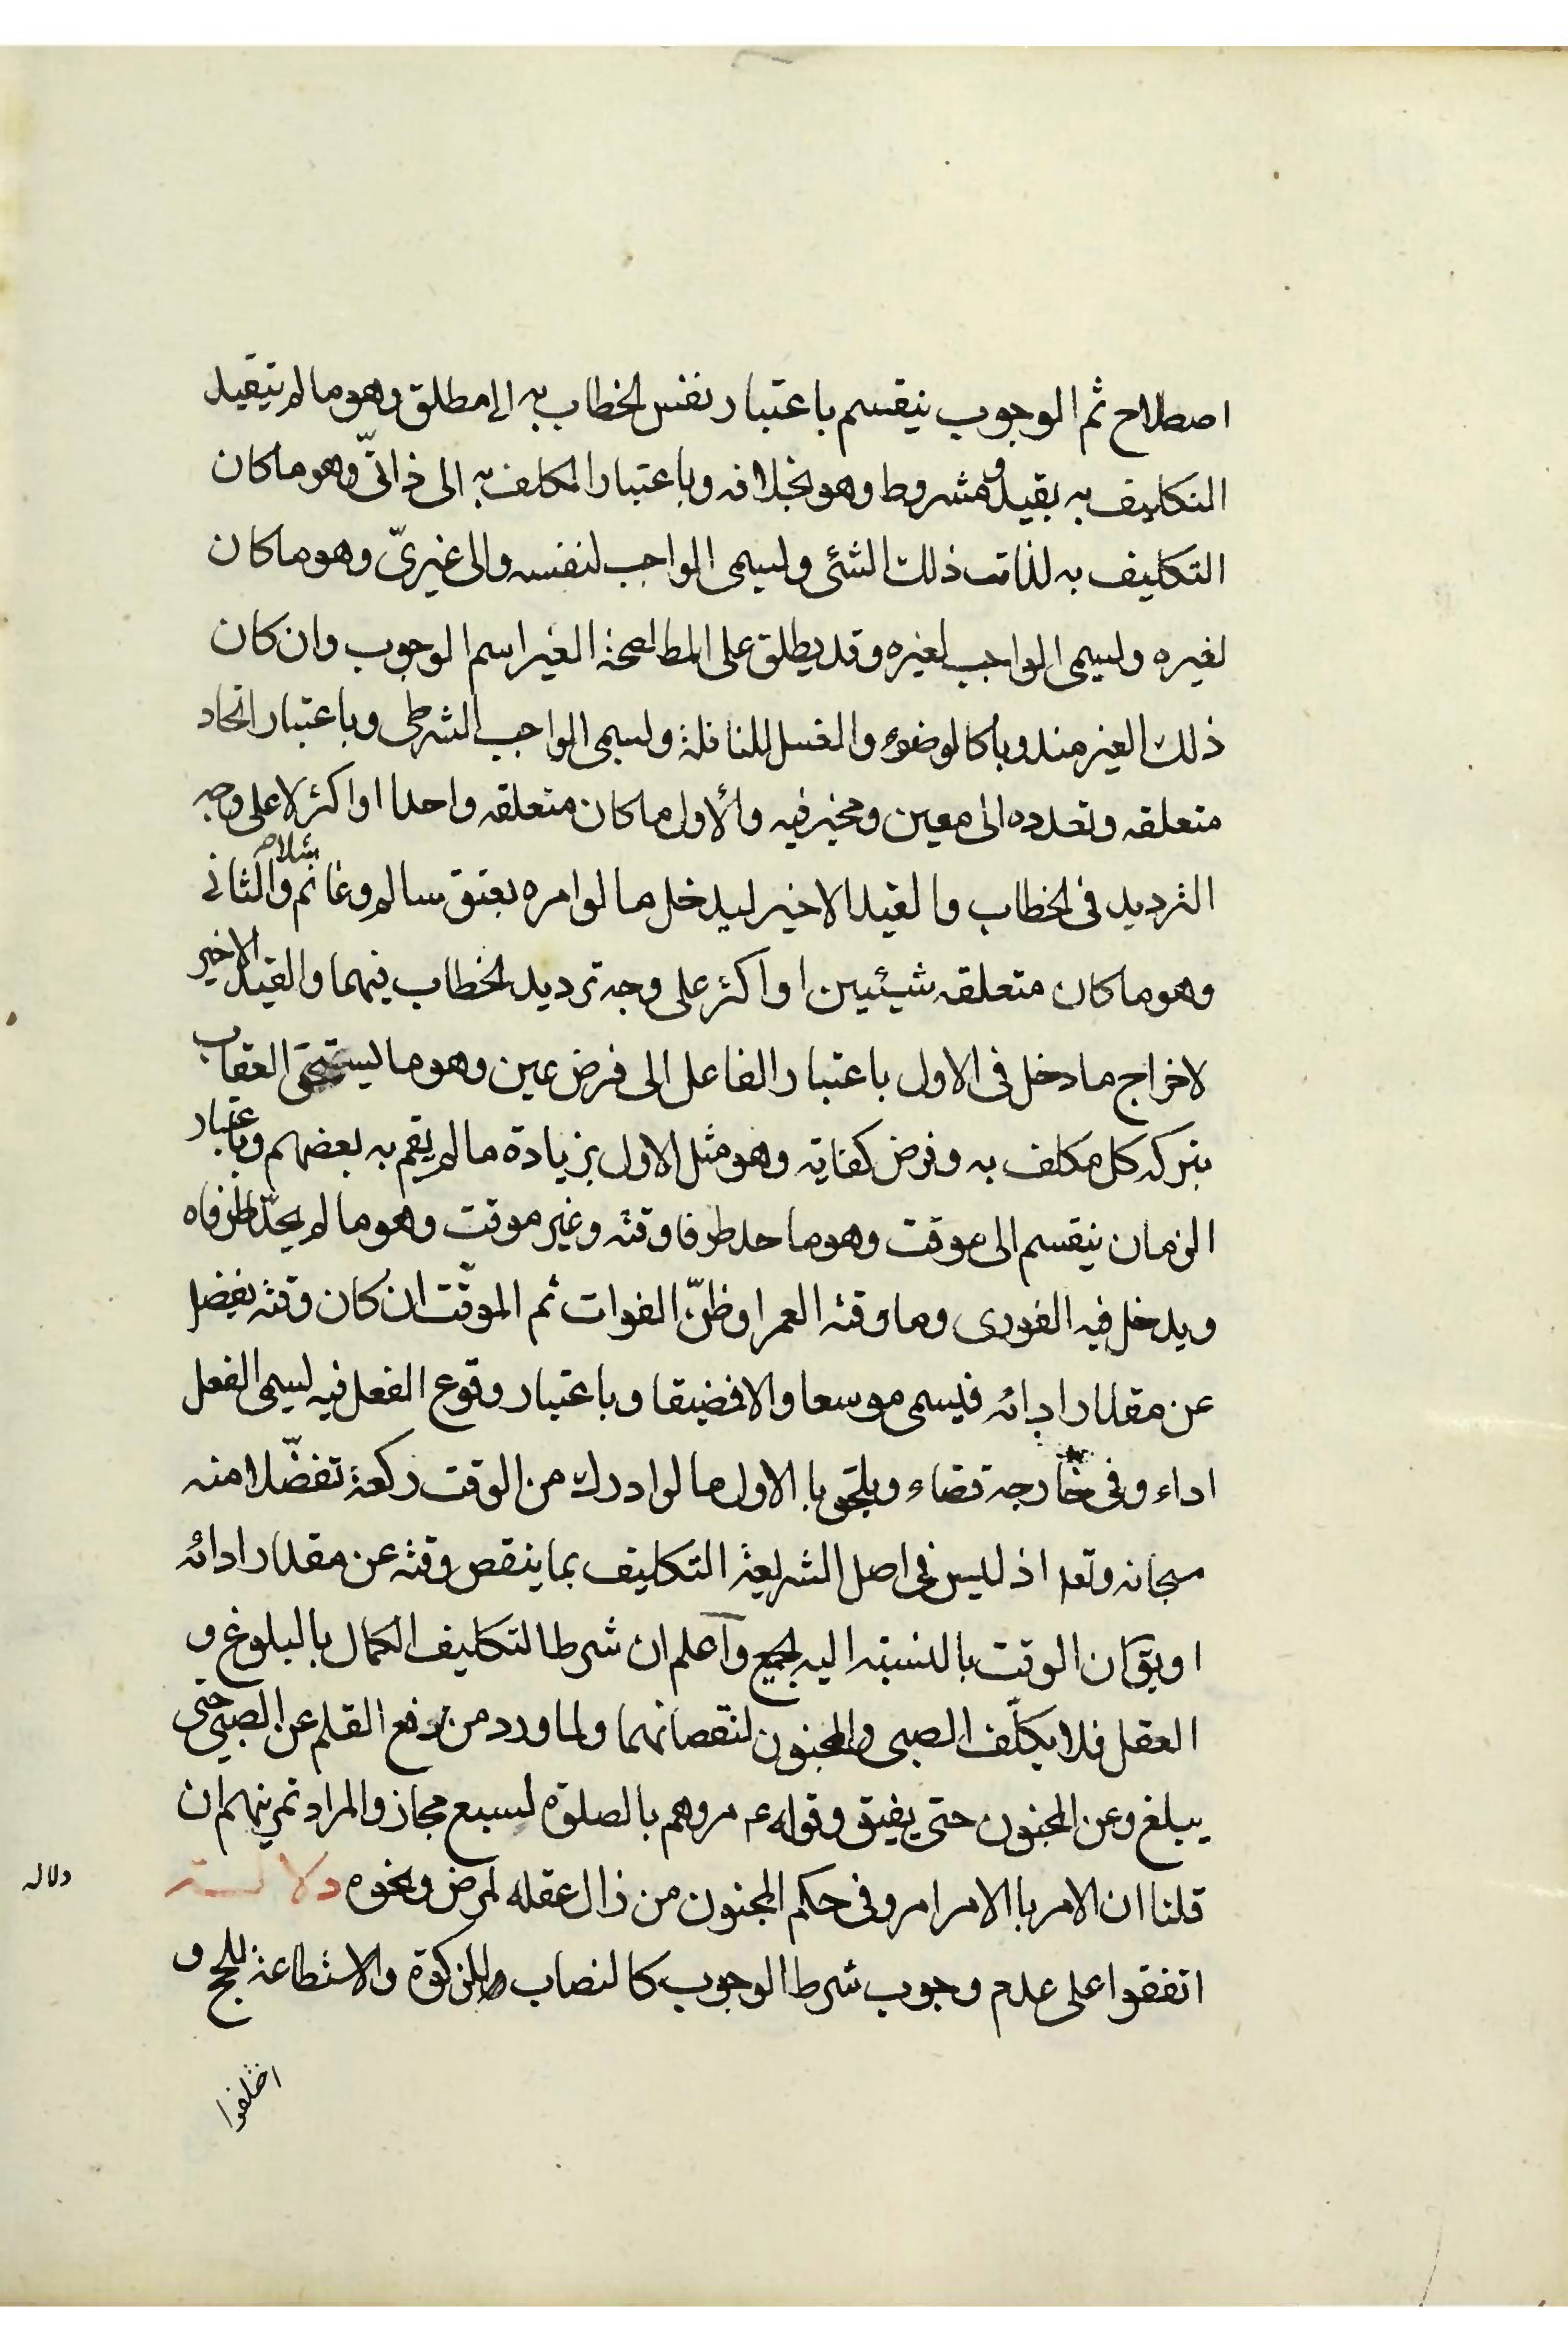 اصطلاح ثم الوجوب ينقسم باعتبار نفس الخطاب به الى مطلق وهو ما لم يتقيد
التكليف به بقيد ومشروط وهو بخلافه وباعتبار المكلف به الى ذاتىّ وهو ما كان
التكليف به لذات ذلك الشئى ويسمى الواجب لنفسه والى غيرىّ وهو ما كان
لغيره ويسمى الواجب لغيره وقد يطلق على المطا لصحة الغير اسم الوجوب وان كان
ذلك الغير مندوبا كالوضوء والغسل للنافلة ويسمى الواجب الشرطى وباعتبار اتحاد
متعلقه وتعدده الى معين ومخير فيه والأول ما كان متعلقه واحدا او اكثر لا على وجه
الترديد فى الخطاب والقيد الاخير ليدخل ما لو امره بعتق سالم وغانم مثلا والثانى
وهو ما كان متعلقه شيئيين او اكثر على وجه ترديد الخطاب بينهما والقيد الاخير
لاخراج ما دخل فى الاول باعتبار الفاعل الى فرض عين وهو ما يستحق العقاب
بتركه كل مكلف به وفرض كفاية وهو مثل الاول بزيادة ما لم يقم به بعضهم وباعتبار
الزمان ينقسم الى موقت وهو ما حد طرفا وقته وغير موقت وهو ما لم يحدّ طرفاه
ويدخل فيه الفورى وما وقته العمر او ظنّ الفوات ثم الموقّت ان كان وقته يفضل
عن مقدار ادائه فيسمى موسعا والا فضيقا وباعتبار وقوع الفعل فيه يسمى الفعل
اداء وفى خارجة قضاء ويلحق با الاول ما لو ادرك من الوقت ركعة تفضّلا منه
سبحانه وتعه اذ ليس فى اصل الشريعة التكليف بما ينقص وقته عن مقدار ادائه
او يق كان الوقت بالنسبة اليه الجميع وآعلم ان شرط التكليف الكمال بالبلوغ و
العقل فلا يكلّف الصبى والمجنون لنقصانهما ولما ورد من رفع القلم عن الصبى حتى
يبلغ وعن المجنون حتى يفيق وقوله ع مروهم بالصلوة لسبع مجاز والمراد تمرينهم ان
قلنا ان الامر با الامر امر وفى حكم المجنون من زال عقله لمرض ونحوه دلالـــة
دلاله
اتفقوا على عدم وجوب شرط الوجوب كالنصاب للزكوة والاستطاعة للحج و
اختلفوا